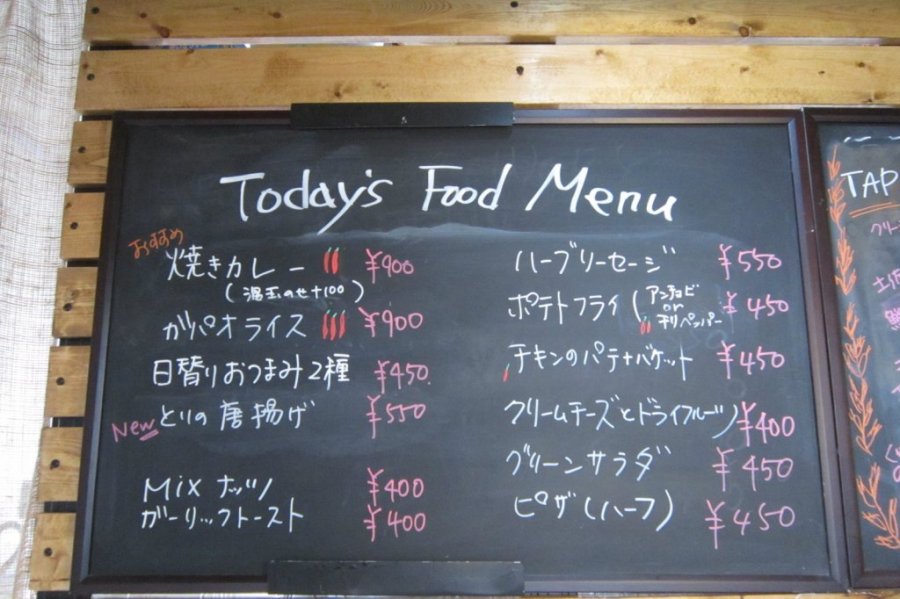 Today's Food Menu
おすすめ
焼きカレー ¥900
(温玉のせ+100)
ガパオライス ¥900
日替りおつまみ2種 ¥450
New とりの唐揚げ ¥550
Mix ナッツ ¥400
ガーリックトースト ¥400
ハーブソーセージ ¥550
ポテトフライ (アンチョビ or チリペッパー ¥450
チキンのパテ+バケット ¥450
クリームチーズとドライフルーツ ¥400
グリーンサラダ ¥450
ピザ(ハーフ) ¥450
TAP